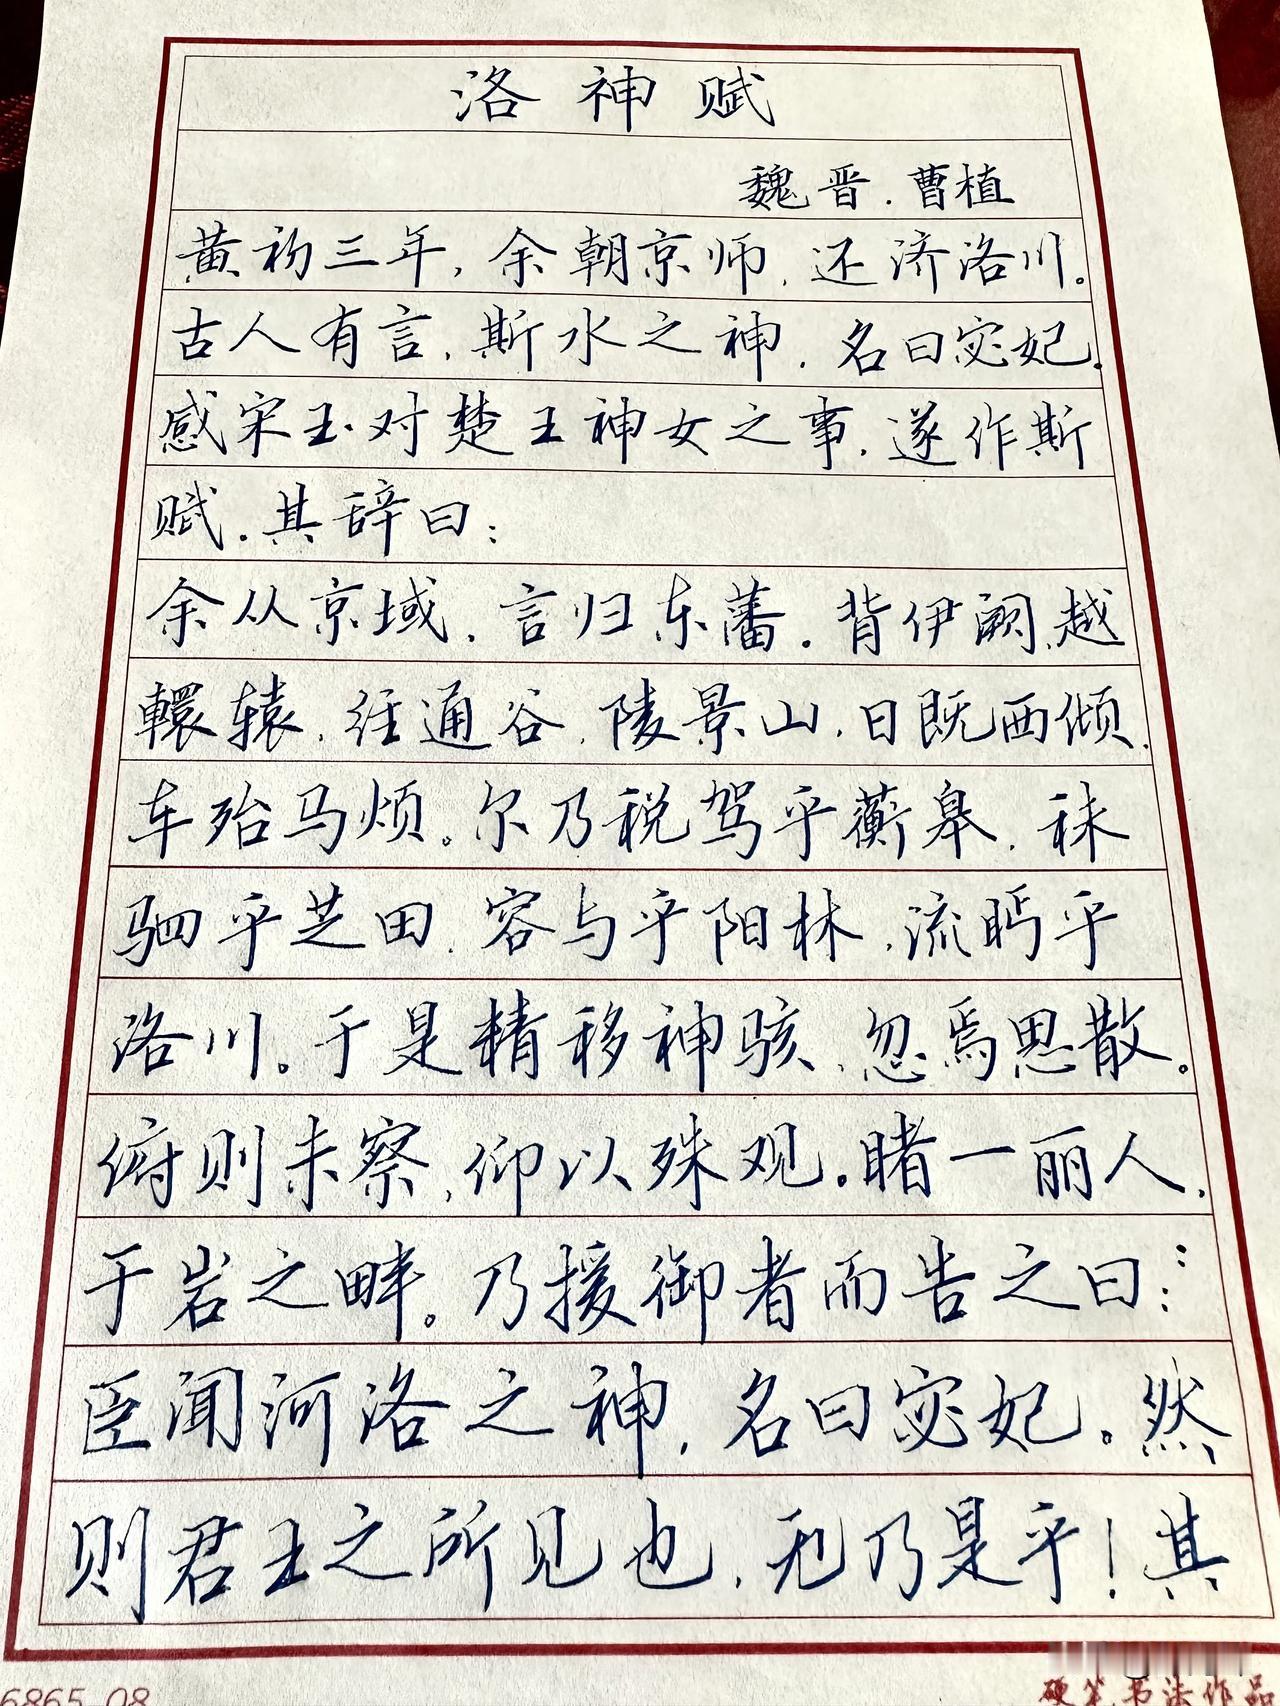 洛神赋
魏晋.曹植
黄初三年,余朝京师,还济洛川。
古人有言,斯水之神,名曰宓妃.
感宋玉对楚王神女之事.遂作斯
赋.其辞曰:
余从京域,言归东藩.背伊阙,越
轘辕,经通谷,陵景山.日既西倾,
车殆马烦。尔乃税驾乎蘅皋,秣
驷乎芝田,容与乎阳林,流眄乎
洛川。于是精移神骇,忽焉思散。
俯则未察,仰以殊观.睹一丽人,
于岩之畔。乃援御者而告之曰:
臣闻河洛之神,名曰宓妃。然
则君王之所见也,无乃是乎!其
6865 08
硬笔书法作品